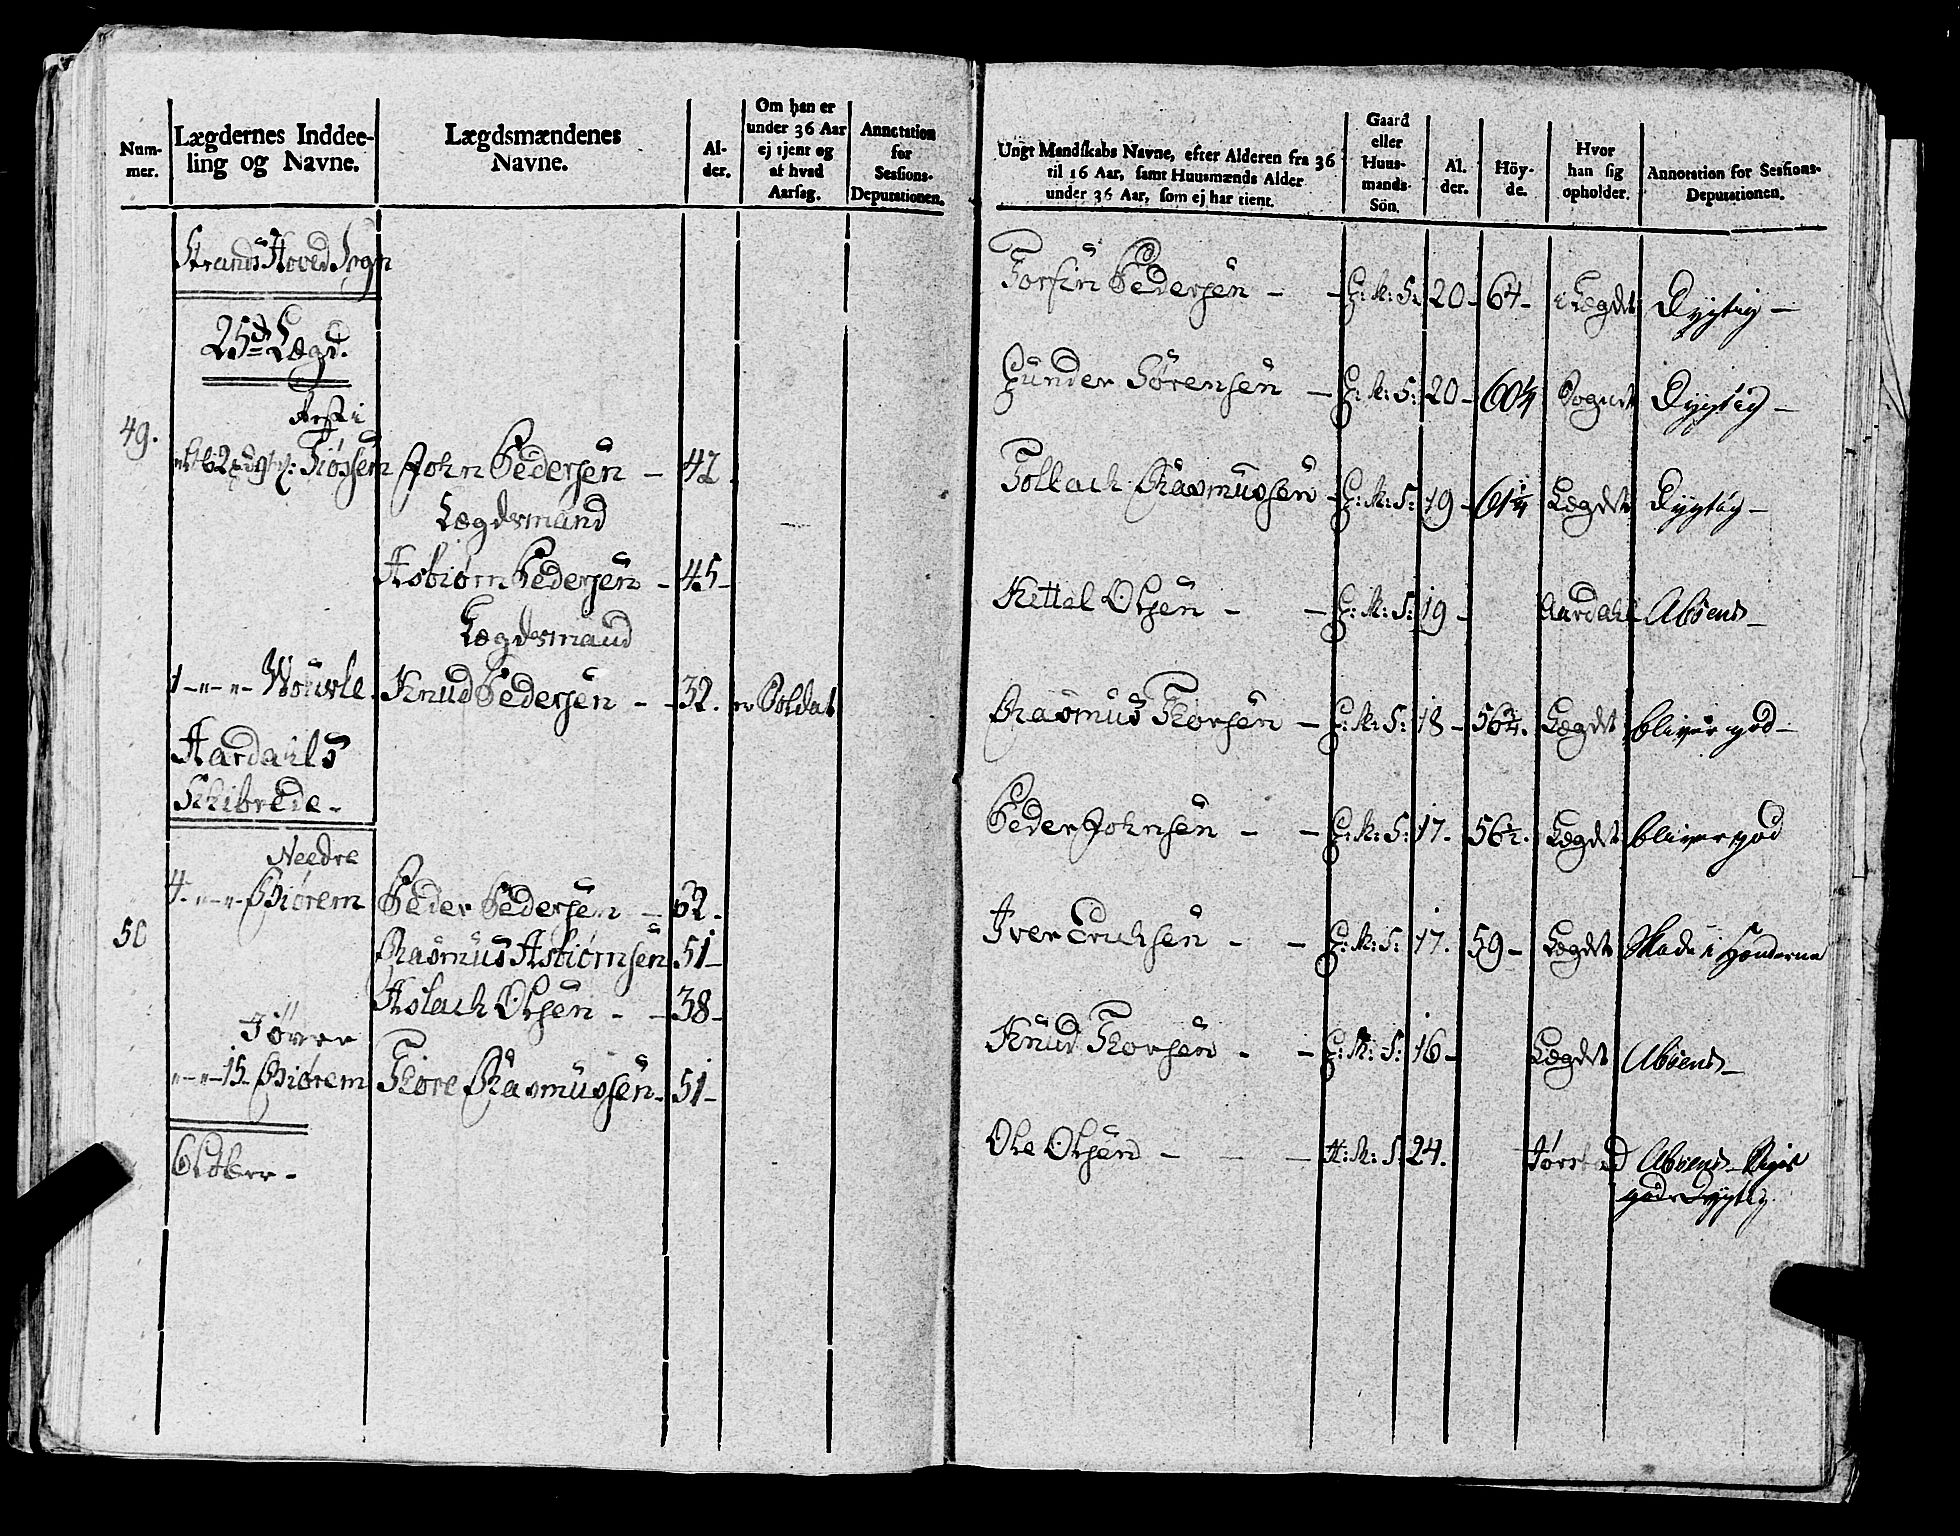 Num-
mer.
Lægdernes Inddee-
ling og Navne.
Lægdsmændenes
Navne.
Al-
der.
Om han er
under 36 Aar
ej tjent og
at hvad
Aarsag.
Annotation
for
Sessions-
Deputationen.
Strands Hoved Sogn
25de Lægd.
49.
Tiøssem John Pedersen - 42
Lægdsmand
Asbiørn Pedersen - 45-
Lægdsmand
1 - " - " - Wourle Knud Pedersen - - 32. er Soldat
Aardahls
Schibrede -
Needre
4 - " - " - Biørem Peder Pedersen - 62-
50
Rasmus Asbiørnsen 51-
Aslach Olsen - - 38-
" - " - 15 - Biørem Tore Rasmussen - 51-
Ungt Mandskabs Navne, efter Alderen fra 36
til 16 Aar, samt Huusmænds Alder
under 36 Aar, som ej har tient.
Gaard
eller
Huus-
mands-
Sön.
Al.
der.
Höy-
de.
Hvor
han sig
opholder.
Annotation for Sessions-
Deputationen.
Torfin Pedersen - - G: M: S: 20 - 64 - i Lægdet Dygtig -
Gunder Sørensen - G: M: S: 20 - 60¼ Sognet Dygtig -
Tollach Rasmussen - G: M: S: 19 - 61¼ Lægdet Dygtig -
Kettel Olsen - - G: M: S: 19 - Aardahl Absent -
Rasmus Thorsen - G: M: S: 18 - 56¾. Lægdet bliver god -
Peder Johnsen - - G: M: S: 17. 56½. Lægdet bliver god
Iver Erichsen - - G: M: S: 17. 59 - Lægdet Skade i Hænderne
Knud Thorsen - - G: M: S: 16 - Lægdet Absent -
Ole Olsen - - - H: M: S: 24. Absent -